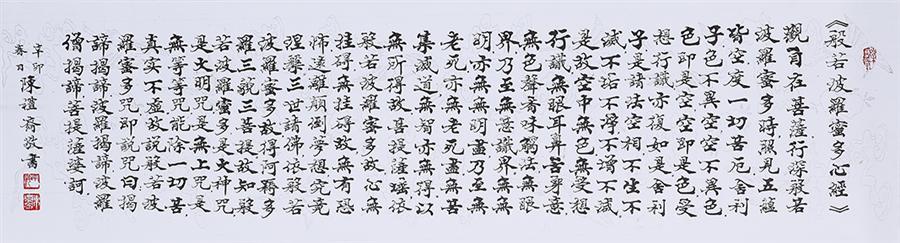 《般若波羅蜜多心經》
觀自在菩薩行深般若
波羅蜜多時照見五蘊
皆空度一切苦厄舍利
子色不異空空不異色
色即是空空即是色受
想行識亦復如是舍利
子是諸法空相不生不
滅不垢不淨不增不減
是故空中無色無受想
行識無眼耳鼻舌身意
無色聲香味觸法無眼
界乃至無意識界無無
明亦無無明盡乃至無
老死亦無老死盡無苦
集滅道無智亦無得以
無所得故菩提薩埵依
般若波羅蜜多故心無
挂碍無挂碍故無有恐
怖遠離顛倒夢想究竟
涅槃三世諸佛依般若
波羅蜜多故得阿耨多
羅三藐三菩提故知般
若波羅蜜多是大神咒
是大明咒是無上咒是
無等等咒能除一切苦
真实不虛故說般若波
羅蜜多咒即說咒曰揭
諦揭諦波羅揭諦波羅
僧揭諦菩提薩婆訶
辛卯
春月
陳齋敬書